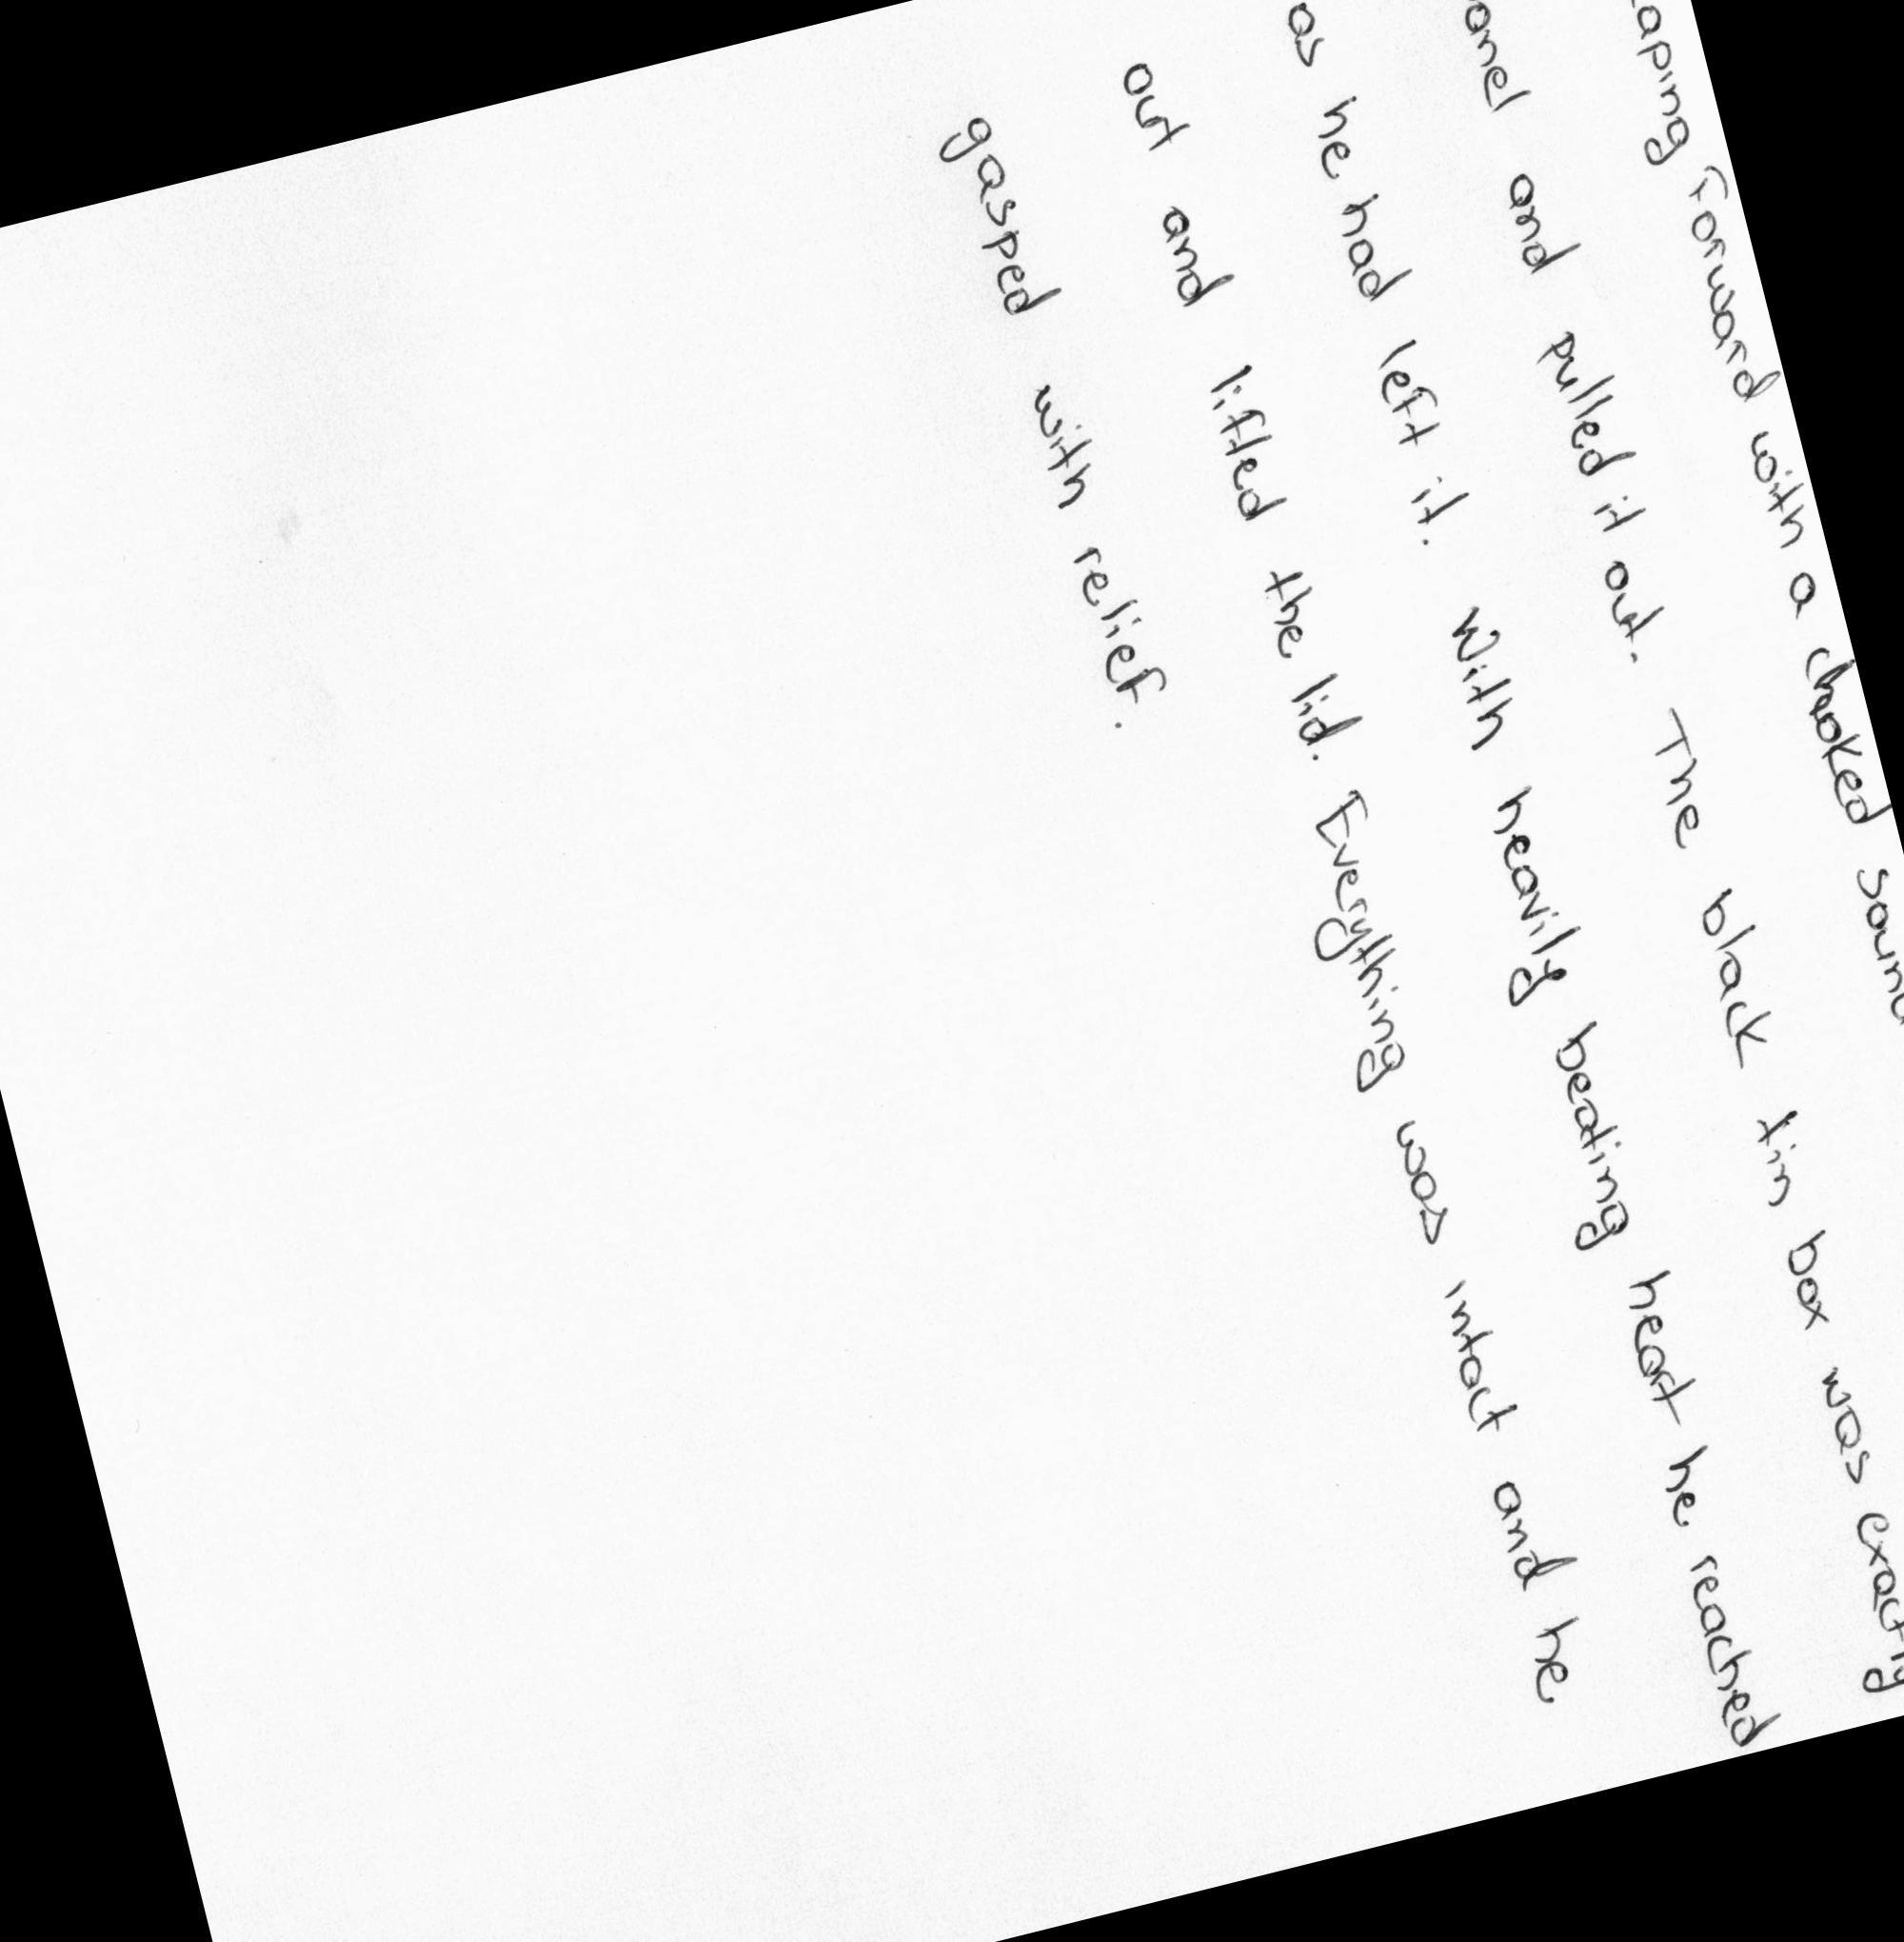 forward with a choked
and pulled it out. The black tin box was exactly
as he had left it. With heavily beating heart he reached
out and lifted the lid. Everything was intact and he
gasped with relief.